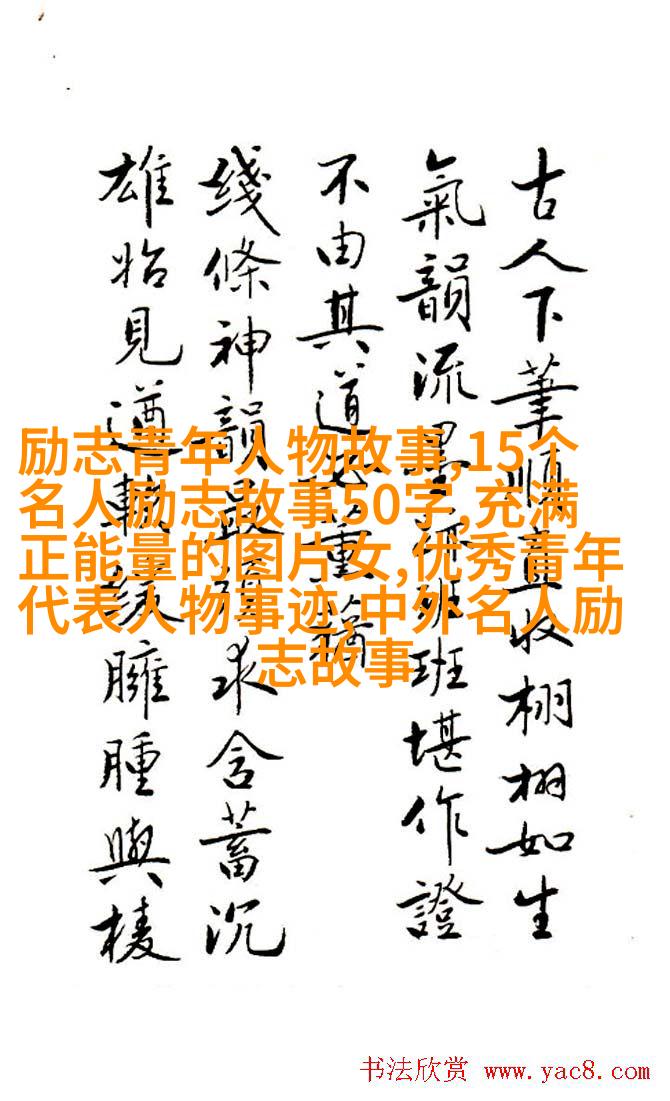 古人下筆順收栩栩如生
氣韻流墨班堪作證
不由其道重
綫條神韻求含蓄沉
雄始見遒臃腫與棱
励志青年人物故事,15个
名人励志故事50字,充满
正能量的图片女,优秀青年
代表人物事迹,中外名人励
志故事
书法欣赏 www.yac8.com